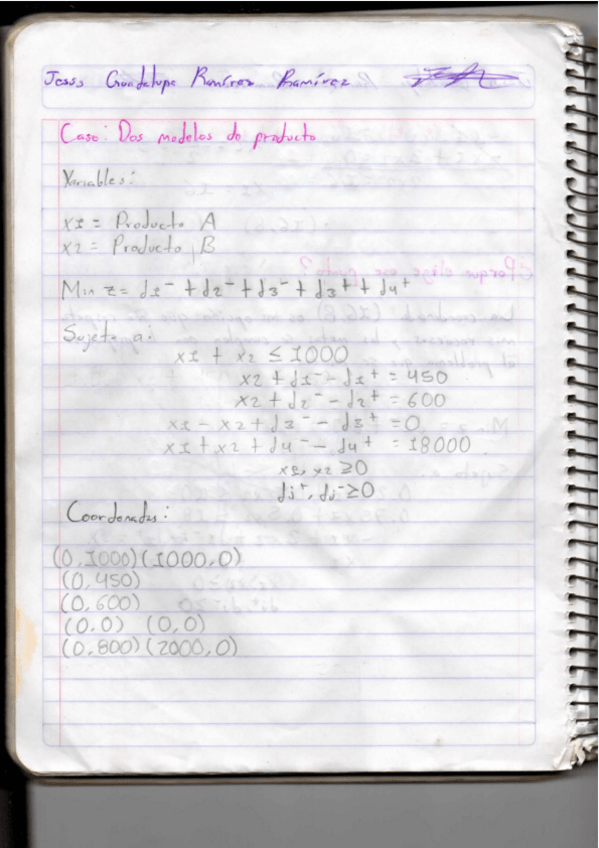 Jesus Guadalupe Ramírez Ramírez
Caso: Dos modelos de producto
Variables:
x1 = Producto A
x2 = Producto B
Min z = d1⁻ + d2⁻ + d3⁻ + d3⁺ + d4⁺
Sujeto a:
x1 + x2 ≤ 1000
x2 + d1⁻ - d1⁺ = 450
x2 + d2⁻ - d2⁺ = 600
x1 - x2 + d3⁻ - d3⁺ = 0
x1 + x2 + d4⁻ - d4⁺ = 18000
x1, x2 ≥ 0
di⁺, di⁻ ≥ 0
Coordenadas:
(0,1000) (1000,0)
(0,450)
(0,600)
(0,0) (0,0)
(0,800) (2000,0)